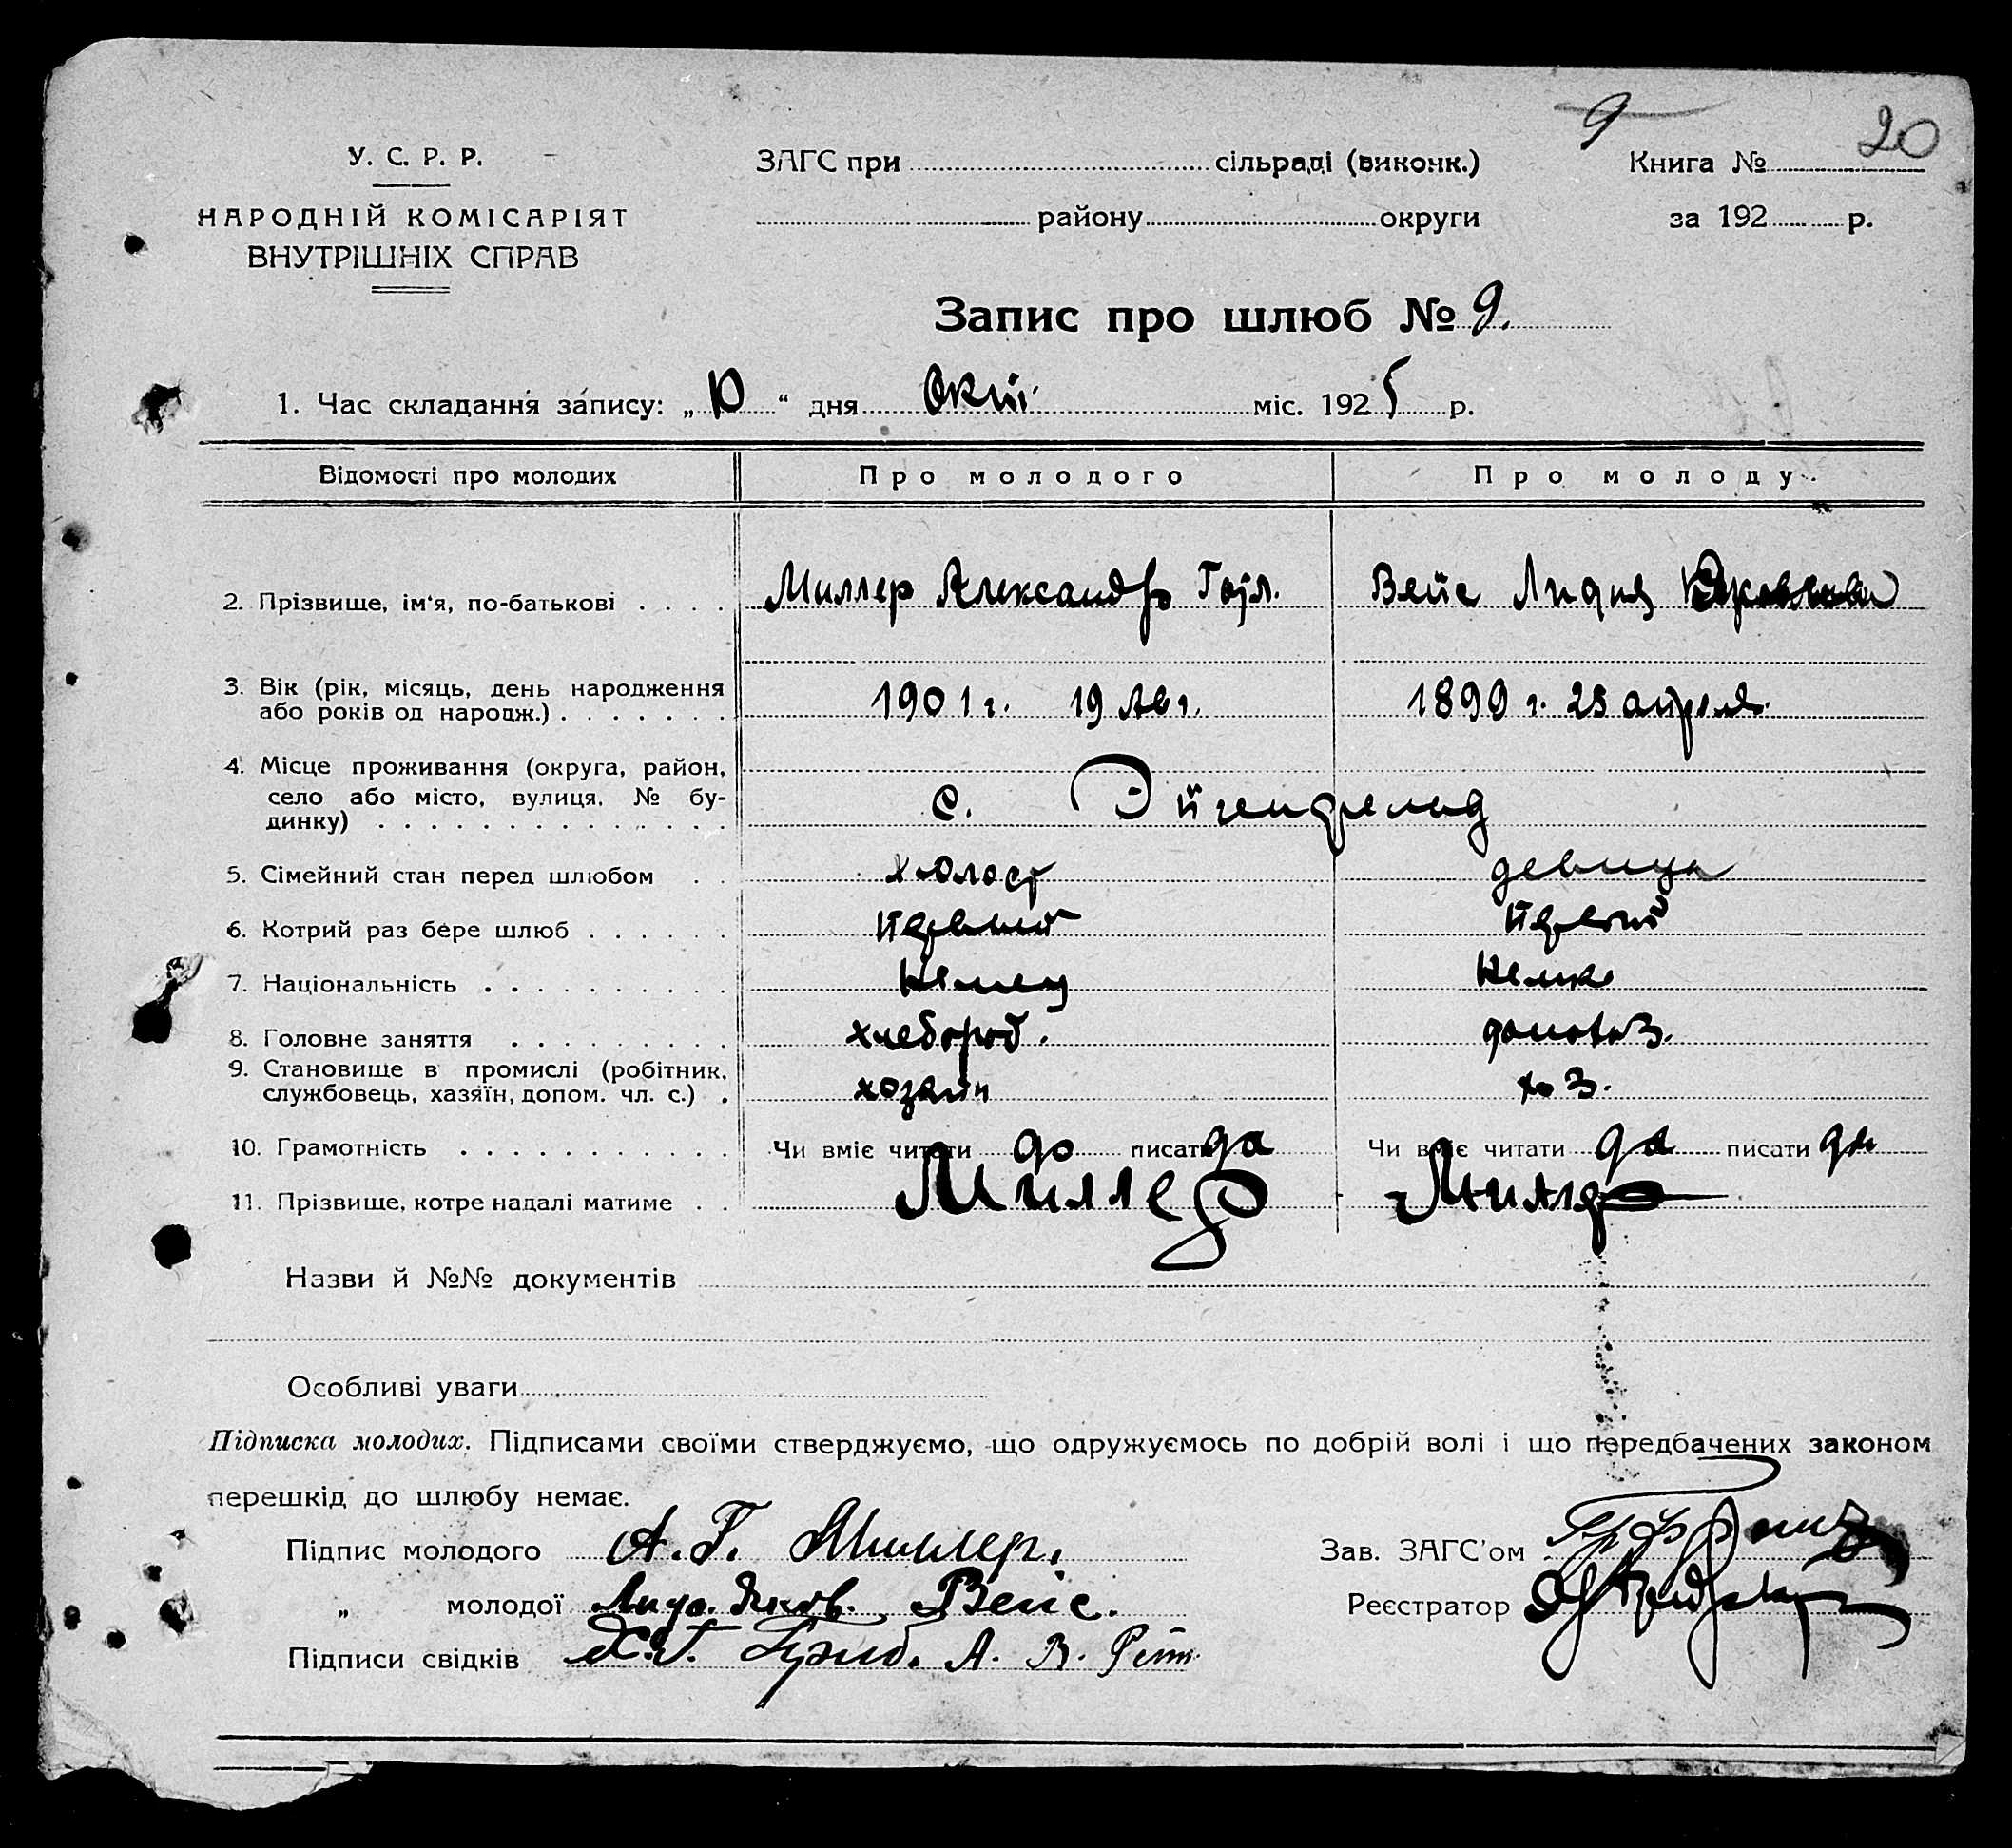 9
20
У. С. Р. Р.
ЗАГС при сільраді (виконк.)
Книга №
НАРОДНІЙ КОМІСАРІЯТ
ВНУТРІШНІХ СПРАВ
району округи
за 192 р.
Запис про шлюб № 9.
1. Час складання запису: „10“ дня Окт. міс. 1925 р.
Відомості про молодих
Про молодого
Про молоду
2. Прізвище, ім'я, по-батькові
Миллер Александр Готл.
Вейс Лидия
3. Вік (рік, місяць, день народження
або років од народж.)
1901 г. 19 Авг.
1899 г. 25 апреля
4. Місце проживання (округа, район,
село або місто, вулиця, № бу-
динку)
с. Эйгенфельд
5. Сімейний стан перед шлюбом
холост
девица
6. Котрий раз бере шлюб
первый
первый
7. Національність
немец
немка
8. Головне заняття
хлебороб.
домохоз.
9. Становище в промислі (робітник,
службовець, хазяїн, допом. чл. с.)
хозяин
хоз.
10. Грамотність
Чи вміє читати да писати да
Чи вміє читати да писати да
11. Прізвище, котре надалі матиме
Миллер
Миллер
Назви й №№ документів
Особливі уваги
Підписка молодих. Підписами своїми стверджуємо, що одружуємось по добрій волі і що передбачених законом
перешкід до шлюбу немає.
Підпис молодого А. Г. Миллер.
Зав. ЗАГС'ом
„ молодої Лид. Яков. Вейс.
Реєстратор
Підписи свідків А. В.